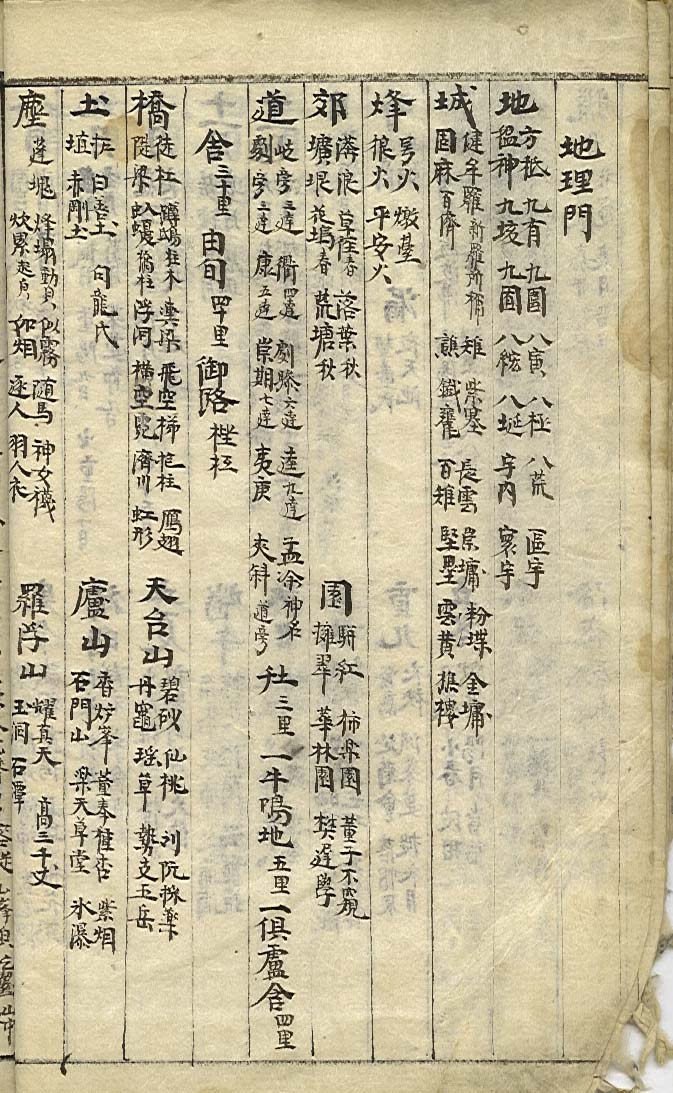 地理門
地
方祗 九有 九圓 八寅 八極 八荒 區宇
神 九垓 九圍 八紘 八埏 宇內 寰宇
城
健牟羅新羅所稱 雉 紫塞 長雲 崇墉 粉堞 金墉
固麻百濟 譙 鐵甕 百雉 堅壘 雲黃 樵樓
烽
号火 燉臺
狼火 平安火
郊
滂浪 草 春 落葉秋
壙垠 花塢春 荒塘秋
園
駢紅 柿梁園 董子不窺
擁翠 華林園 樊遲學
道
岐旁二達 衢四達 劇驂六達 逵九達 孟冷神名
劇旁三達 康五達 崇期七達 夷庚 夾斜道旁
社三里 一牛鳴地五里 一俱盧舍四里
舍三十里 由旬四十里 御路
橋
徒杠 柱木 梁 飛空 梯 柱 鴈翅
陡梁 柱 浮河 橫空 霓 濟川 虹形
天台山
碧砂 仙桃 刘阮採藥
丹竈 瑶草 勢支玉岳
土
白土 句龍氏
埴 赤剛土
廬山
香炉峯 董奉種杏 紫烟
石門山 樂天草堂 氷瀑
塵
蓬塊 烽塌動皃 似霧 隨馬 神女襪
炊累起皃 如烟 逐人 羽人衣
羅浮山
耀真天 高三千丈
玉洞 石潭